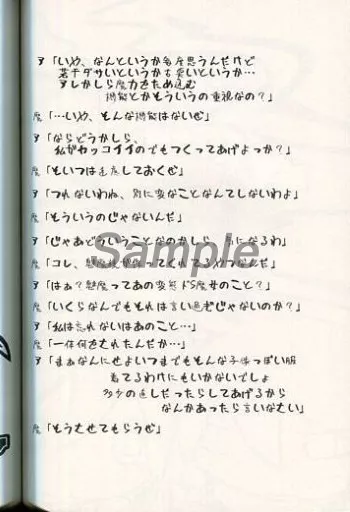 ア「いや、なんというか毎度思うんだけど
若干ダサいというか古臭いというか…
アレかしら魔力をため込む
機能とかそういうの重視なの?」
魔「…いや、そんな機能はないぜ」
ア「ならどうかしら、
私がカッコイイのでもつくってあげよっか?」
魔「そいつは遠慮しておくぜ」
ア「つれないわね、別に変なことなんてしないわよ」
魔「そういうのじゃないんだ」
ア「じゃあどういうことなのかしら、気になるわ」
魔「コレ、魅魔様が作ってくれてるやつなんだ」
ア「はぁ?魅魔ってあの変態ドS魔母のこと?」
魔「いくらなんでもそれは言い過ぎじゃないのか?」
ア「私は忘れないはあのこと…」
魔「一体何をされたんだか…」
ア「まぁなんにせよいつまでもそんな子供っぽい服
着てるわけにもいかないでしょ
多少の直しだったらしてあげるから
なんかあったら言いなさい」
魔「そうさせてもらうぜ」
Sample